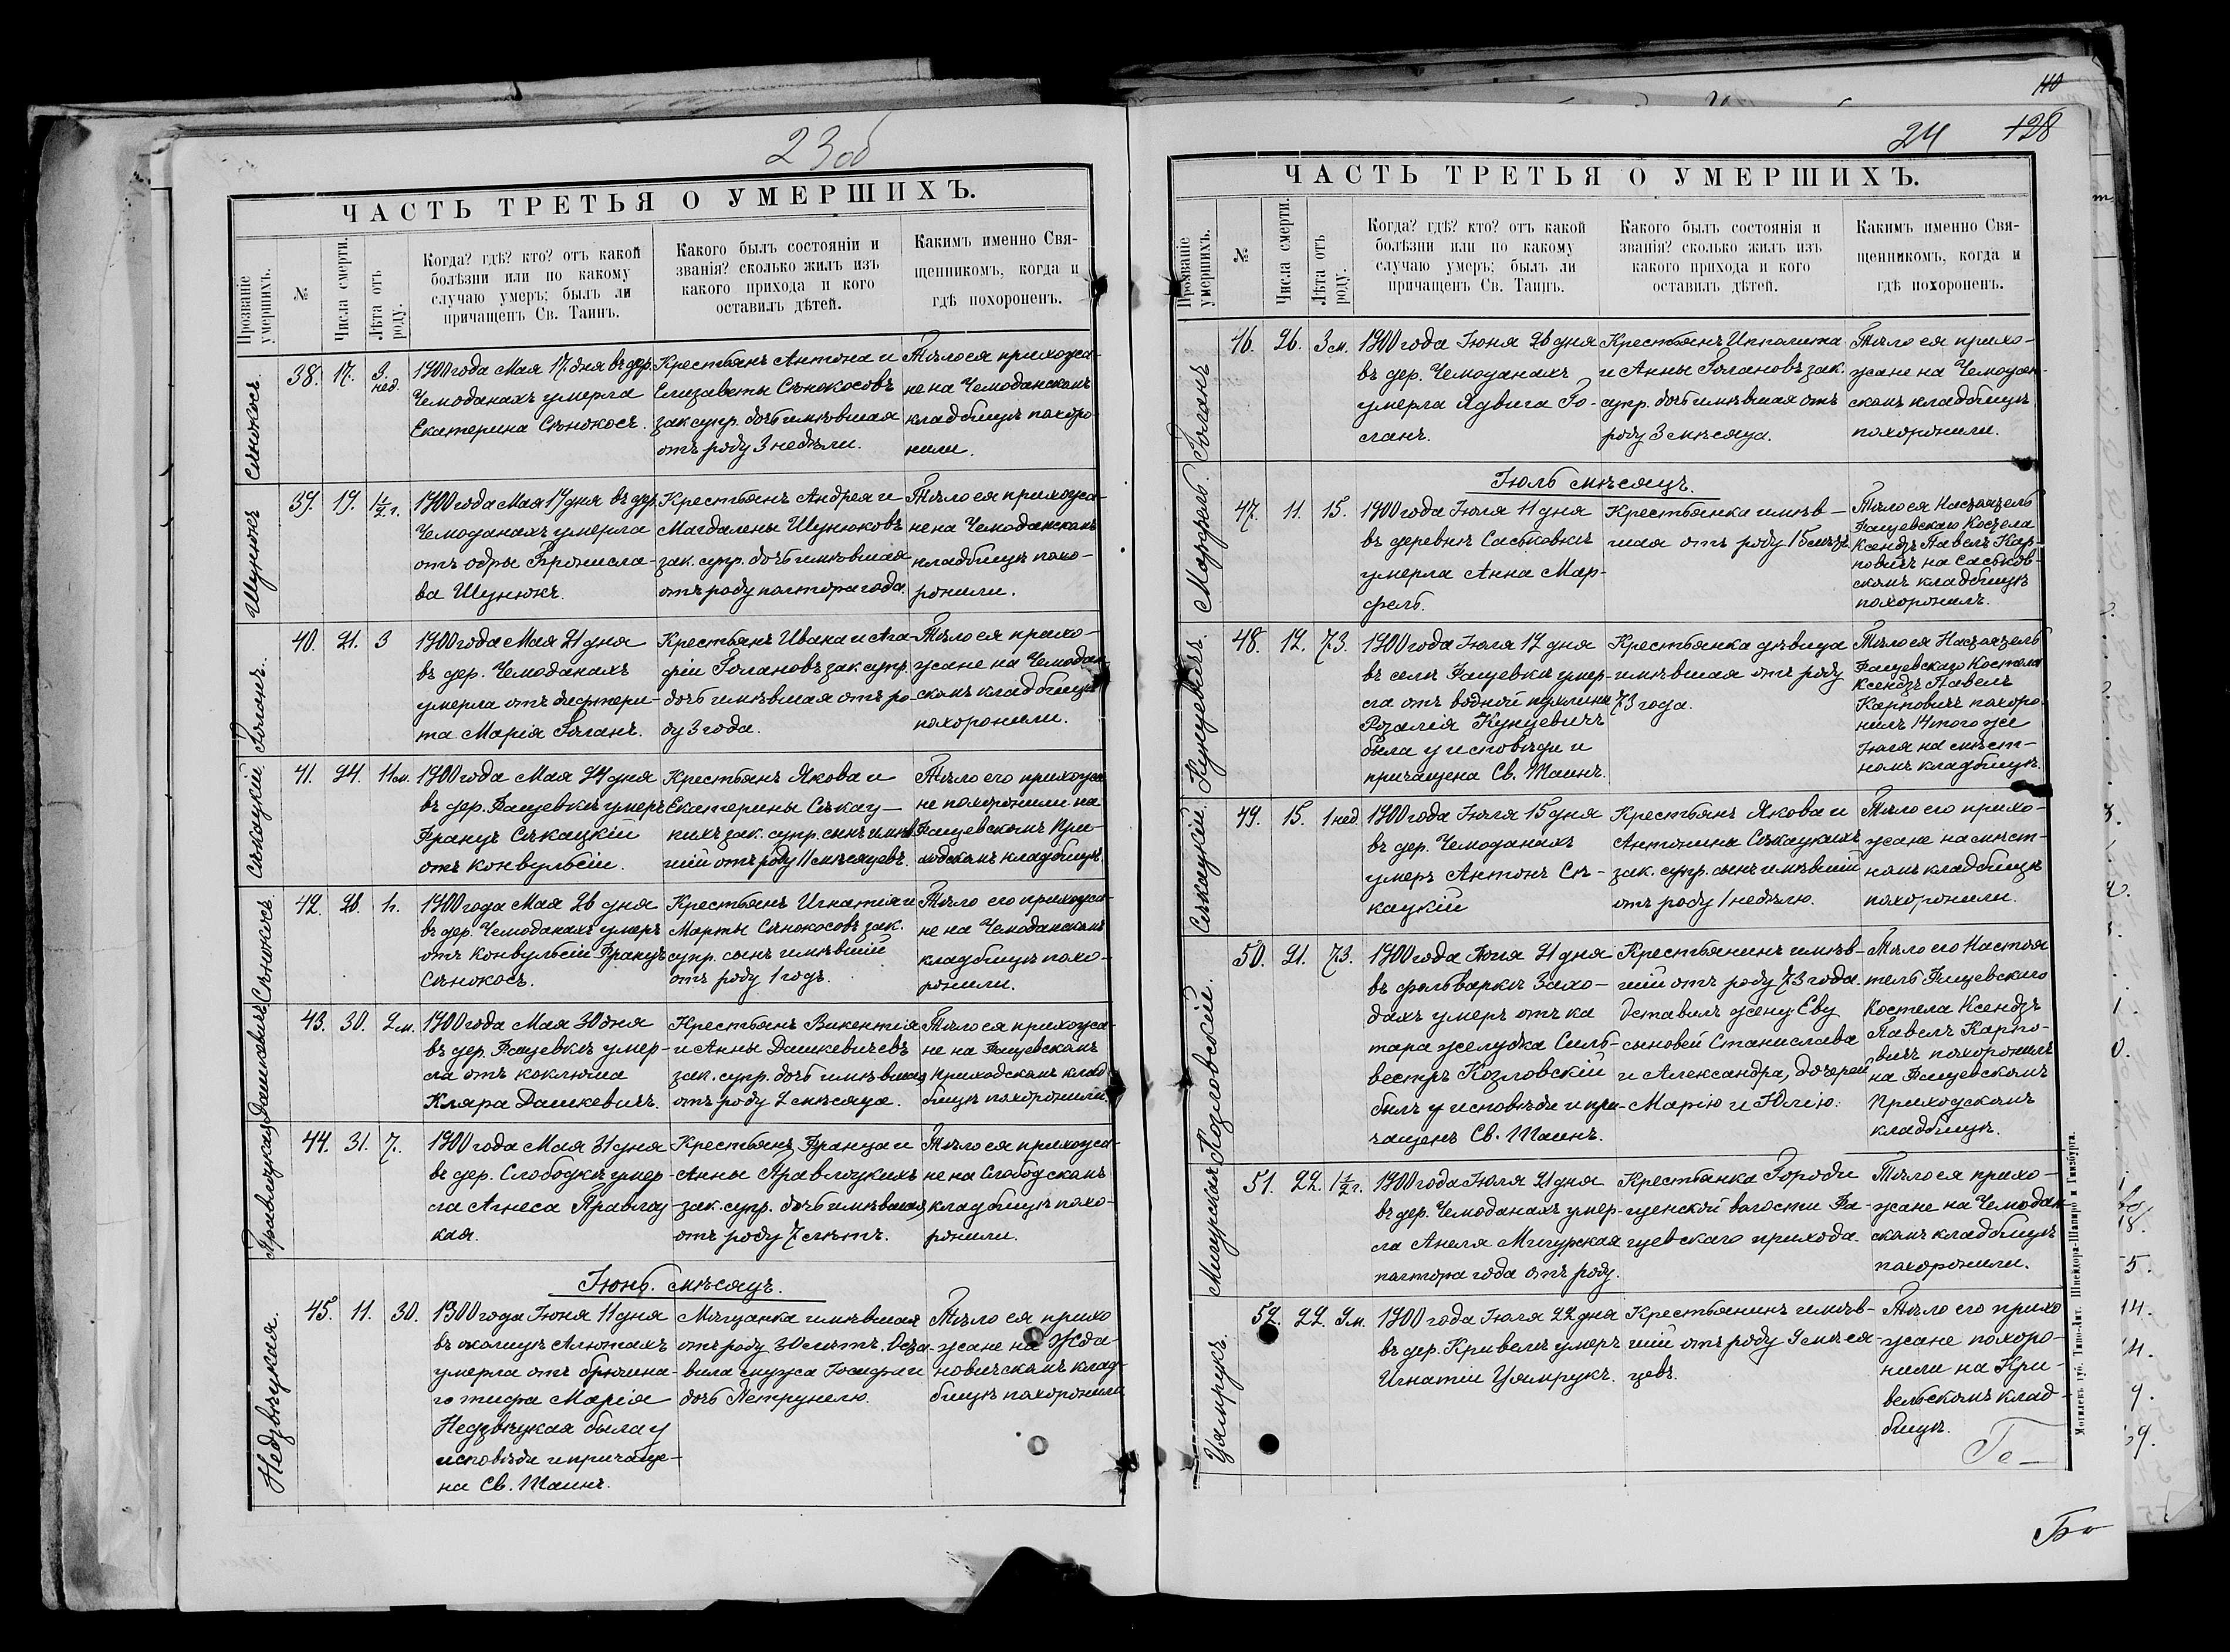 23об
ЧАСТЬ ТРЕТЬЯ О УМЕРШИХЪ.
Прозваніе умершихъ.
№
Числа смерти.
Лѣта отъ роду.
Когда? гдѣ? кто? отъ какой
болѣзни или по какому
случаю умеръ; былъ ли
причащенъ Св. Таинъ.
Какого былъ состоянія и
званія? сколько жилъ изъ
какого прихода и кого
оставилъ дѣтей.
Какимъ именно Свя-
щенникомъ, когда и
гдѣ похороненъ.
Сѣнокосъ.
38. 17. 3. нед.
1900 года Мая 17. дня въ дер.
Чемоданахъ умерла
Екатерина Сѣнокосъ.
Крестьянъ Антона и
Елизаветы Сѣнокосовъ
зак. супр. дочь имѣвшая
отъ роду 3 недѣли.
Тѣло ея прихожа-
не на Чемоданскомъ
кладбищѣ похоро-
нили.
Шунюкъ
39. 19. 1½ г.
1900 года Мая 19 дня въ дер.
Чемоданахъ умерла
отъ одры Бронисла-
ва Шунюкъ.
Крестьянъ Андрея и
Магдалены Шунюковъ
зак. супр. дочь имѣвшая
отъ роду полтора года.
Тѣло ея прихожа-
не на Чемоданскомъ
кладбищѣ похо-
ронили.
Голанъ.
40. 21. 3
1900 года Мая 21 дня
въ дер. Чемоданахъ
умерла отъ дифтери-
та Марія Голанъ.
Крестьянъ Ивана и Ага-
фіи Голановъ зак. супр.
дочь имѣвшая отъ ро-
ду 3 года.
Тѣло ея прихо-
жане на Чемодан-
скомъ кладбищѣ
похоронили.
Сѣкацкій.
41. 24. 11 м.
1900 года Мая 24 дня
въ дер. Фащевкѣ умеръ
Францъ Сѣкацкій
отъ конвульсіи.
Крестьянъ Якова и
Екатерины Сѣкац-
кихъ зак. супр. сынъ имѣв
шій отъ роду 11 мѣсяцевъ.
Тѣло его прихожа
не похоронили на
Фащевскомъ При-
ходскомъ кладбищѣ.
Сѣнокосъ
42. 28. 1 г.
1900 года Мая 28 дня
въ дер. Чемоданахъ умеръ
отъ конвульсіи Францъ
Сѣнокосъ.
Крестьянъ Игнатія и
Марты Сѣнокосовъ зак.
супр. сынъ имѣвшій
отъ роду 1 годъ.
Тѣло его прихожа-
не на Чемоданскомъ
кладбищѣ похо-
ронили.
Дашкевичъ
43. 30. 2 м.
1900 года Мая 30 дня
въ дер. Фащевкѣ умер-
ла отъ коклюша
Кляра Дашкевичъ.
Крестьянъ Викентія
и Анны Дашкевичевъ
зак. супр. дочь имѣвшая
отъ роду 2 мѣсяца.
Тѣло ея прихожа-
не на Фащевскомъ
Приходскомъ клад
бищѣ похоронили.
Правлуцкая
44. 31. 7.
1900 года Мая 31 дня
въ дер. Слободкѣ умер
ла Агнеса Правлуц-
кая.
Крестьянъ Франца и
Анны Правлуцкихъ
зак. супр. дочь имѣвшая
отъ роду 7 лѣтъ.
Тѣло ея прихожа-
не на Слободскомъ
кладбищѣ похо-
ронили.
Іюнь. мѣсяцъ.
Недзвѣцкая.
45. 11. 30.
1900 года Іюня 11 дня
въ околицѣ Алютахъ
умерла отъ брюшна-
го тифа Марія
Недзвѣцкая была у
исповѣди и причаще-
на Св. Таинъ.
Мѣщанка имѣвшая
отъ роду 30 лѣтъ. Оста-
вила мужа Іосифа и
дочь Петрунелю.
Тѣло ея прихо
жане на Жда-
новичскомъ клад-
бищѣ похоронили
110
24 128
ЧАСТЬ ТРЕТЬЯ О УМЕРШИХЪ.
Прозваніе умершихъ.
№
Числа смерти.
Лѣта отъ роду.
Когда? гдѣ? кто? отъ какой
болѣзни или по какому
случаю умеръ; былъ ли
причащенъ Св. Таинъ.
Какого былъ состоянія и
званія? сколько жилъ изъ
какого прихода и кого
оставилъ дѣтей.
Какимъ именно Свя-
щенникомъ, когда и
гдѣ похороненъ.
Голанъ
46. 26. 3 м.
1900 года Іюня 26 дня
въ дер. Чемоданахъ
умерла Ядвига Го-
ланъ.
Крестьянъ Ипполита
и Анны Голановъ зак.
супр. дочь имѣвшая отъ
роду 3 мѣсяца.
Тѣло ея прихо-
жане на Чемодан-
скомъ кладбищѣ
похоронили.
Іюль мѣсяцъ.
Марфель.
47. 11. 15.
1900 года Іюля 11 дня
въ деревнѣ Саськовкѣ
умерла Анна Мар-
фель.
Крестьянка имѣв-
шая отъ роду 15 лѣтъ
Тѣло ея Настоятель
Фащевскаго Костела
Ксендзъ Павелъ Кар-
повичъ на Саськов-
скомъ кладбищѣ
похоронилъ.
Кунцевичъ.
48. 12. 73.
1900 года Іюля 12 дня
въ селѣ Фащевкѣ умер-
ла отъ водной пухлины
Розалія Кунцевичъ
была у исповѣди и
причащена Св. Таинъ.
Крестьянка дѣвица
имѣвшая отъ роду
73 года.
Тѣло ея Настоятель
Фащевскаго Костела
Ксендзъ Павелъ
Карповичъ похоро-
нилъ 14 того же
Іюля на мѣст-
номъ кладбищѣ.
Сѣкацкій.
49. 15. 1 нед
1900 года Іюля 15 дня
въ дер. Чемоданахъ
умеръ Антонъ Сѣ-
кацкій
Крестьянъ Якова и
Антонина Сѣкацкихъ
зак. супр. сынъ имѣвшій
отъ роду 1 недѣлю.
Тѣло его прихо-
жане на мѣст-
номъ кладбищѣ
похоронили.
Козловскій.
50. 21. 73.
1900 года Іюля 21 дня
въ фольваркѣ Захо-
дахъ умеръ отъ ка
тара желудка Силь-
вестръ Козловскій
былъ у исповѣди и при-
чащенъ Св. Таинъ.
Крестьянинъ имѣв-
шій отъ роду 73 года.
Оставилъ жену Еву
сыновей Станислава
и Александра, дочерей
Марію и Юлію.
Тѣло его Настоя
тель Фащевскаго
Костела Ксендзъ
Павелъ Карпо-
вичъ похоронилъ
на Фащевскомъ
Приходскомъ
кладбищѣ.
Мигурская
51. 22. 1½ г.
1900 года Іюля 21 дня
въ дер. Чемоданахъ умер-
ла Анеля Мигурская
полтора года отъ роду.
Крестьянка Городи
щенской волости Фа-
щевскаго прихода.
Тѣло ея прихо-
жане на Чемодан-
скомъ кладбищѣ
похоронили.
Цямрукъ.
52. 22. 9 м.
1900 года Іюля 22 дня
въ дер. Кривелѣ умеръ
Игнатій Цямрукъ.
Крестьянинъ имѣв-
шій отъ роду 9 мѣся-
цевъ.
Тѣло его прихо
жане похоро-
нили на Кри-
вельскомъ клад-
бищѣ.
Могилевъ губ. Типо-Лит. Шнейдора-Шапиро и Гинзбурга.